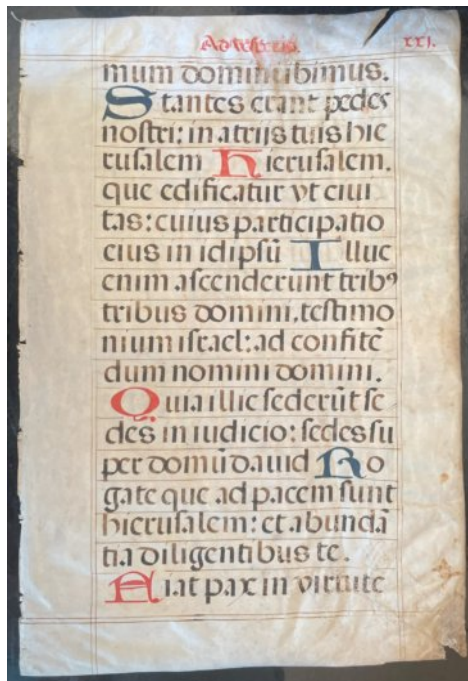 Ad vesperas. XXI.
mum domini ibimus.
Stantes erant pedes
nostri: in atrijs tuis hie
rusalem Hierusalem.
que edificatur vt ciui
tas: cuius participatio
eius in idipsũ Illuc
enim ascenderunt tribꝰ
tribus domini, testimo
nium israel: ad confitẽ
dum nomini domini.
Quia illic sederũt se
des in iudicio: sedes su
per domũ dauid Ro
gate que ad pacem sunt
hierusalem: et abundã
tia diligentibus te.
Fiat pax in virtute